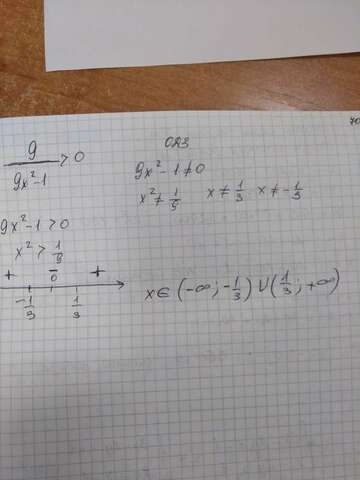 70
9/(9x²-1) > 0
ОДЗ
9x² - 1 ≠ 0
x² ≠ 1/9 x ≠ 1/3 x ≠ -1/3
9x² - 1 > 0
x² > 1/9
+ - +
-1/3 1/3
x ∈ (-∞; -1/3) ∪ (1/3; +∞)